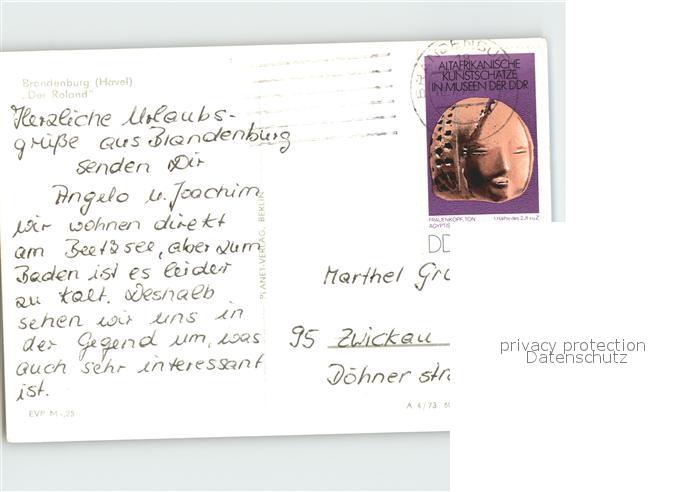 Brandenburg (Havel)
„Der Roland"
Herzliche Urlaubs-
grüße aus Brandenburg
senden Dir
Angelo u. Joachim
wir wohnen direkt
am Beetzsee, aber zum
Baden ist es leider
zu kalt. Deshalb
sehen wir uns in
der Gegend um, was
auch sehr interessant
ist.
EVP M -,25
PLANET-VERLAG, BERLIN
ALTAFRIKANISCHE
KUNSTSCHÄTZE
IN MUSEEN DER DDR
FRAUENKOPF, TON
ÄGYPTIS
1. Hälfte des 2. Jt v u Z
DD
Marthel Gr
95 Zwickau
Döhner str
A 4/73
privacy protection
Datenschutz